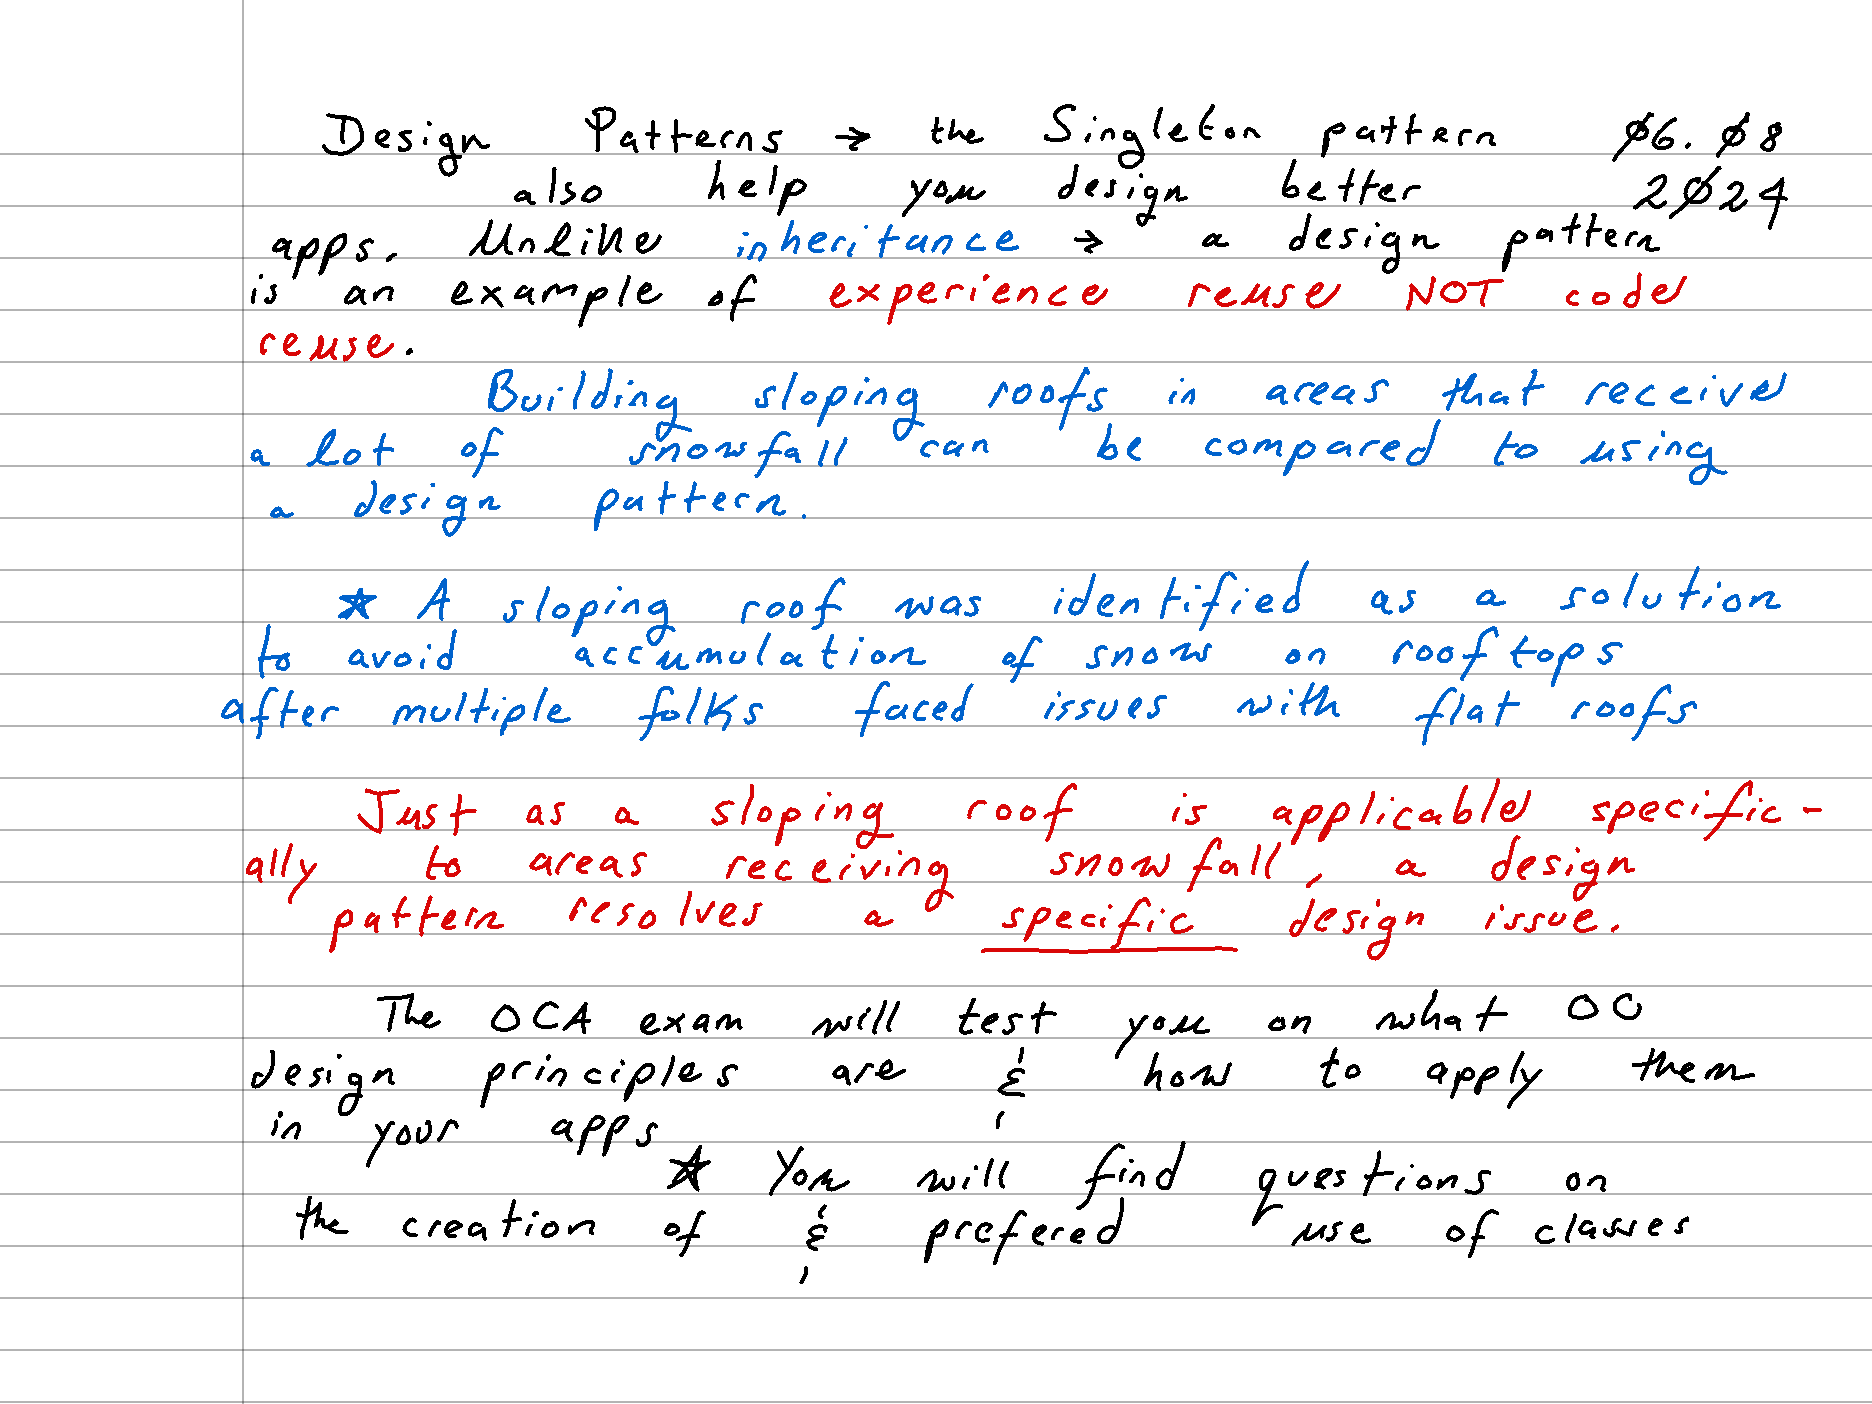 Design Patterns → the Singleton pattern 06.08
also help you design better 2024
apps. Unlike inheritance → a design pattern
is an example of experience reuse NOT code
reuse.
Building sloping roofs in areas that receive
a lot of snowfall can be compared to using
a design pattern.
★ A sloping roof was identified as a solution
to avoid accumulation of snow on rooftops
after multiple folks faced issues with flat roofs
Just as a sloping roof is applicable specific-
ally to areas receiving snowfall, a design
pattern resolves a specific design issue.
The OCA exam will test you on what OO
design principles are & how to apply them
in your apps
★ You will find questions on
the creation of & prefered use of classes